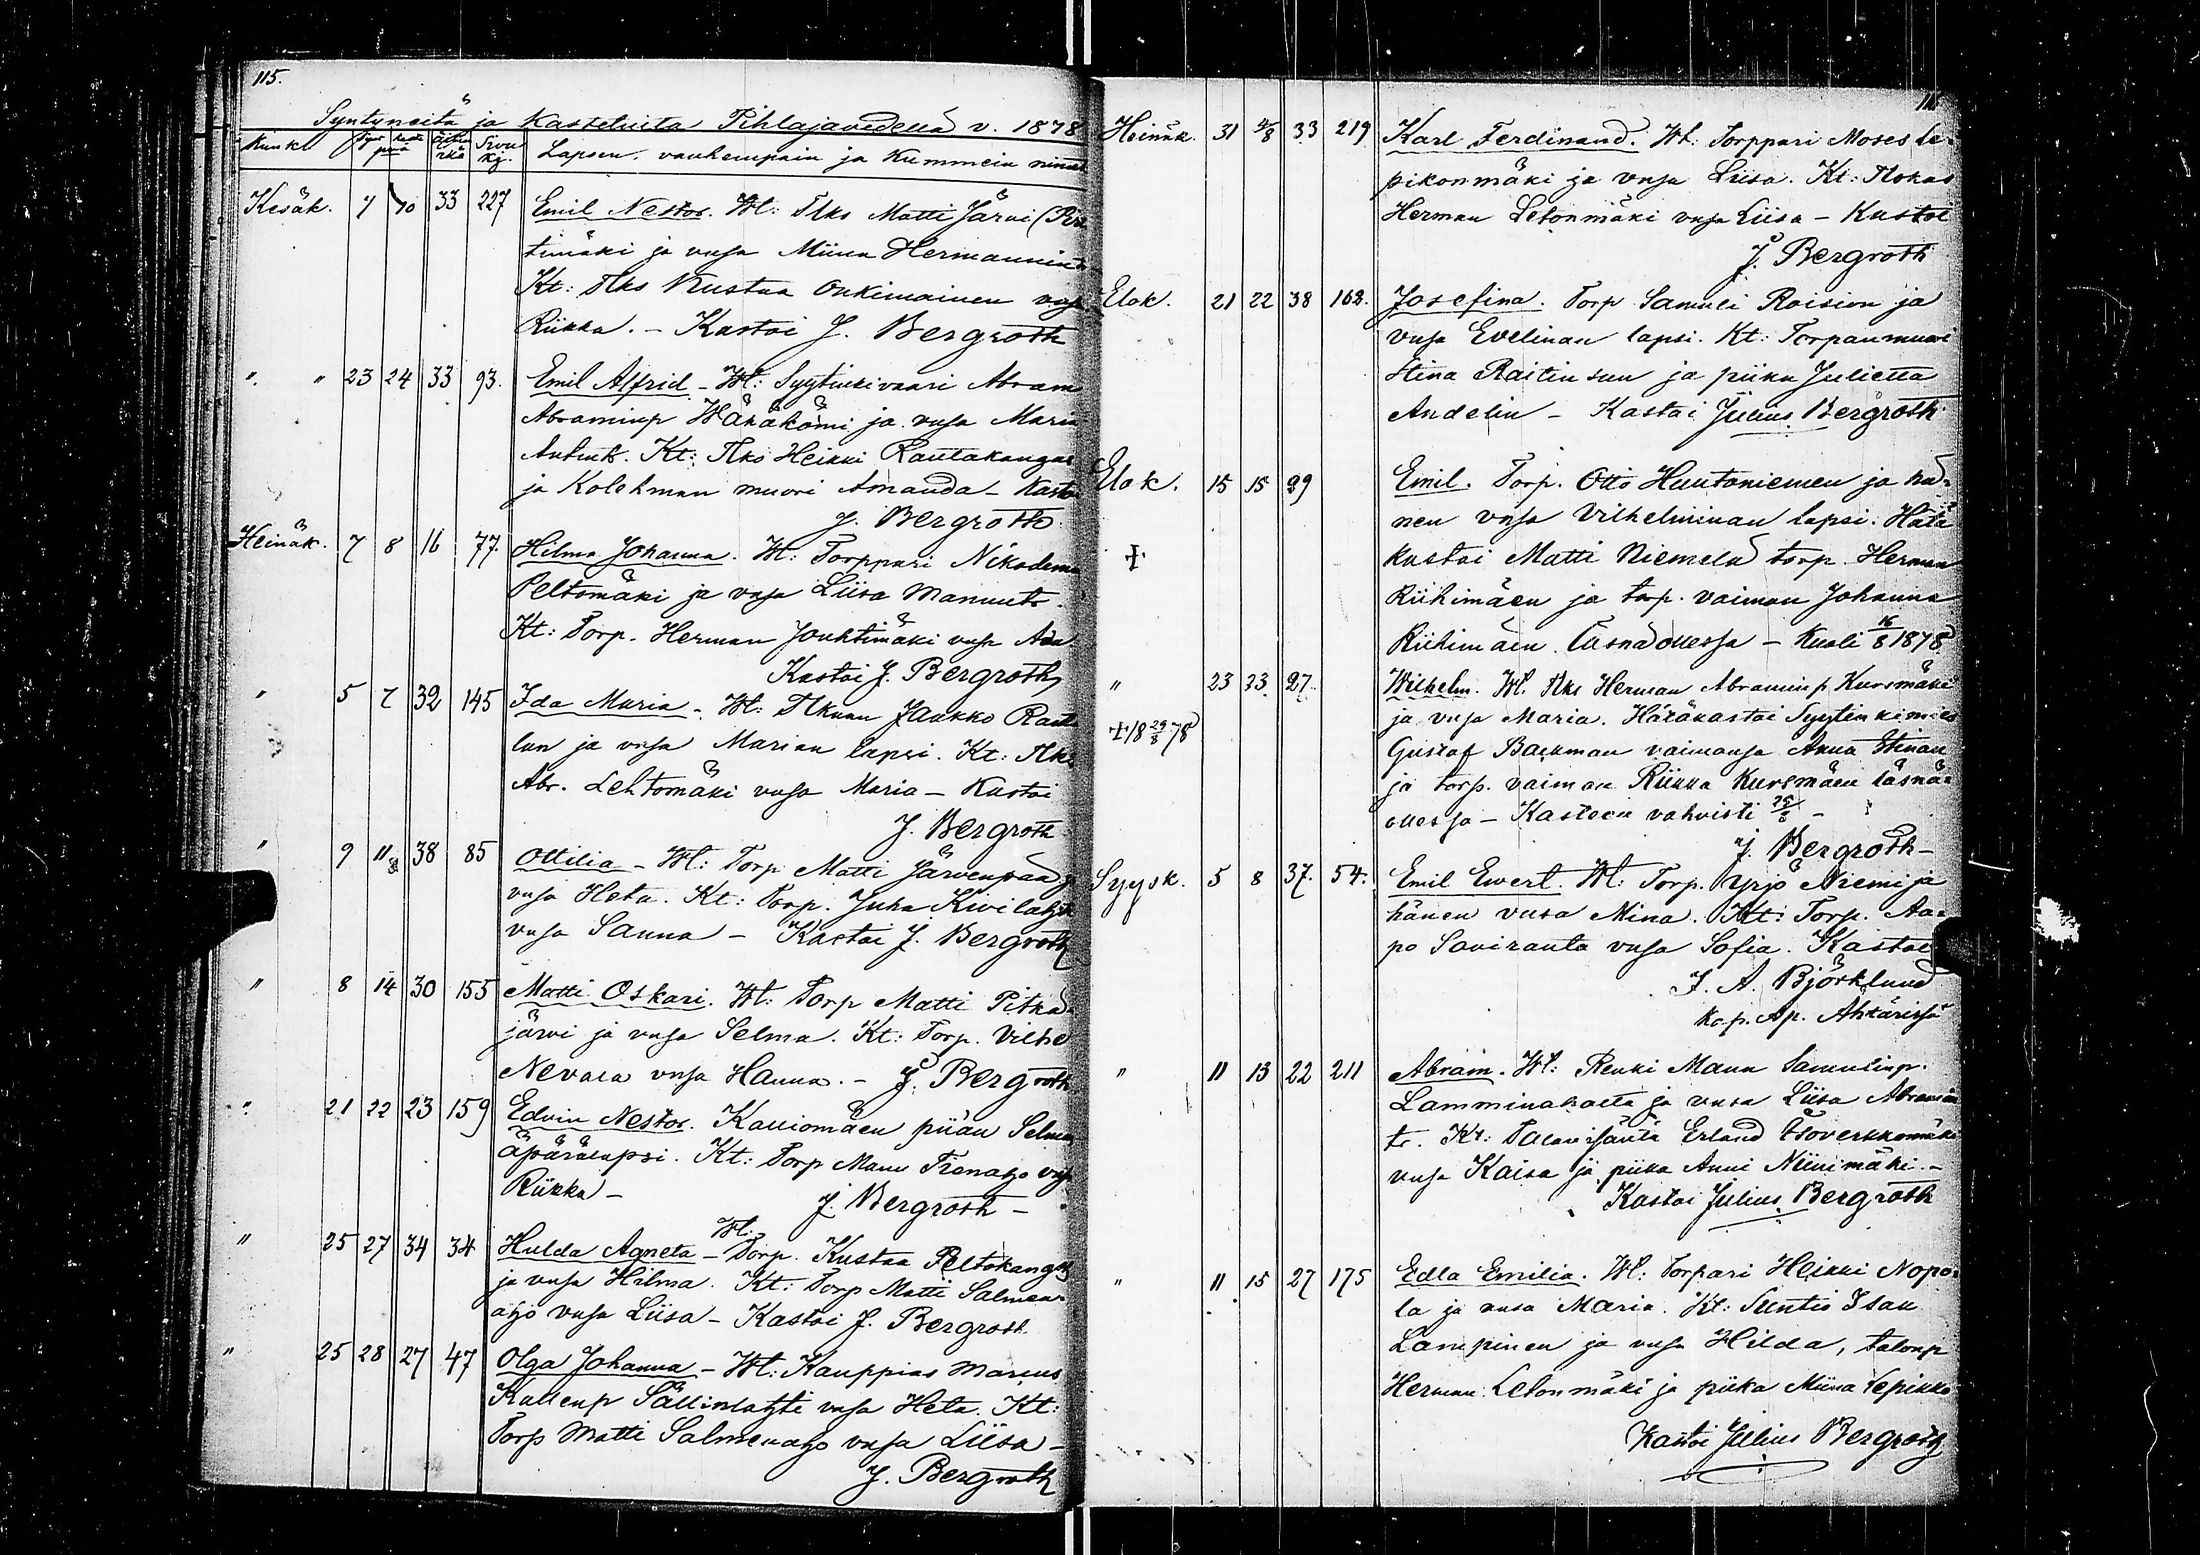 115.
Syntyneitä ja Kastetuita Pihlajavedellä v. 1878
Kuuk. Synt. Kaste päivä Äitin ikä Sivu kj. Lapsen, vanhempain ja Kummein nimet
Kesäk. 7 10 33 227 Emil Nestor. Wt: Itks Matti Järvi
timäki ja vmsa Miina Hermannint.
Kt: Itks Kustaa Onkimainen vmsa
Riikka. - Kastoi J. Bergroth
" " 23 24 33 93. Emil Alfrid - Wt: Syytinkivaari Abram
Abraminp Wäräkömi ja vmsa Maria
Antint. Kt: Itks Heikki Rautakangas
ja Kolehman muori Amanda - Kastoi
J. Bergroth
Heinäk. 7 8 16 77. Hilma Johanna. Wt: Torppari Nikodemu
Peltomäki ja vmsa Liisa Manuut.
Kt: Torp. Herman Jouhtimäki vmsa Ada
Kastoi J. Bergroth
" 5 7 32 145 Ida Maria - Wt: Itkuun Jaakko Rauta
lan ja vmsa Marian lapsi. Kt: Itks
Abr. Lehtomäki vmsa Maria - Kastoi
J. Bergroth
" 9 11 38 85 Ottilia - Wt: Torp Matti Järvenpää ja
vmsa Heta. Kt: Torp. Juha Kivilahti
vmsa Sanna - Kastoi J. Bergroth
" 8 14 30 155 Matti Oskari. Wt: Torp Matti Pitkä-
järvi ja vmsa Selma. Kt: Torp. Vilhe
Nevala vmsa Hanna. - J. Bergroth
" 21 22 23 159 Edvin Nestor. Kalliomäen piian Selma
äpärälapsi. Kt: Torp Manu Tienaho vmsa
Riikka - J. Bergroth -
" 25 27 34 34 Hulda Agneta - Wt: Torp. Kustaa Peltokangas
ja vmsa Hilma. Kt: Torp Matti Salmen-
aho vmsa Liisa - Kastoi J. Bergroth
" 25 28 27 47 Olga Johanna - Wt: Kauppias Marcus
Kallenp Sällinlahti vmsa Heta. Kt:
Torp Matti Salmenaho vmsa Liisa -
J. Bergroth
Heinäk. 31 4/8 33 219 Karl Ferdinand. Wt: Torppari Moses Le-
pikonmäki ja vmsa Liisa. Kt: Itokas
Herman Letonmäki vmsa Liisa - Kastoi
J. Bergroth
Elok. 21 22 38 162. Josefina. Torp Samuli Raision ja
vmsa Evelinan lapsi. Kt: Torpanmuori
Stina Raitinsuu ja piika Julietta
Andelin - Kastoi Julius Bergroth
Elok. 15 15 29 Emil. Torp. Otto Huutoniemen ja hä-
nen vmsa Vilhelminan lapsi. Hätä
kastoi Matti Niemelä torp. Herman
Riihimäen ja torp. vaiman Johanna
Riihimäen läsnä ollessa - Kuoli 16/8 1878
" 23 23 27. Wilhelm. Wt. Itks Herman Abraminp Kursmäki
+ 18 29/8 78 ja vmsa Maria. Hätäkastoi Syytinkimies
Gustaf Backman vaimonsa Anna Stinan
ja torp. vaiman Riikka Kursmäen läsnä-
ollessa - Kasteen vahvisti 25/8 -
J. Bergroth -
Syysk. 5 8 37. 54. Emil Ewert. Wt: Torp. Yrjö Niemi ja
hänen vmsa Mina. Kt: Torp. Aa-
po Saviranta vmsa Sofia. Kastoi
J. A. Björklund
Kap. Ap. Ähtärissä
" 11 13 22 211 Abram. Wt: Renki Manu Samulinp.
Lamminakalta ja vmsa Liisa Abramin
tr. Kt: Talonisäntä Erland Isoverkkomäki
vmsa Kaisa ja piika Anni Niinimäki. -
Kastoi Julius Bergroth
" 11 15 27 175 Edla Emilia. Wt: Torpari Heikki Nopo-
la ja vmsa Maria. Kt: Suntio Isak
Lampinen ja vmsa Hilda, talonp
Herman Letonmäki ja piika Miina Lepikko
Kastoi Julius Bergroth